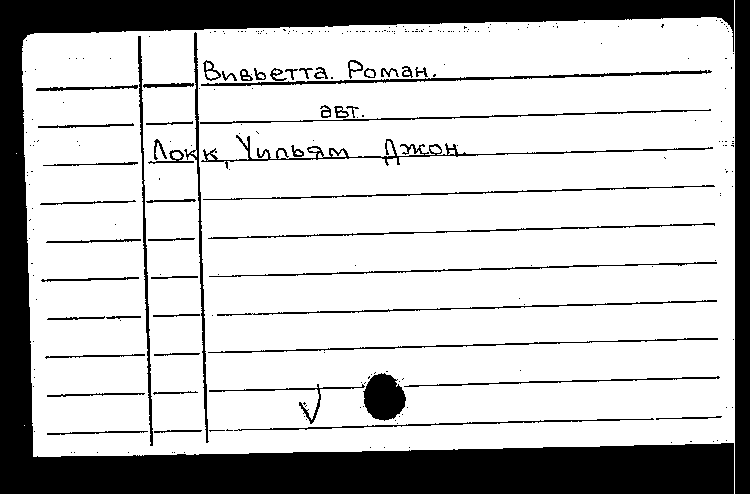 Вивьетта. Роман.
авт.
Локк, Уильям Джон.